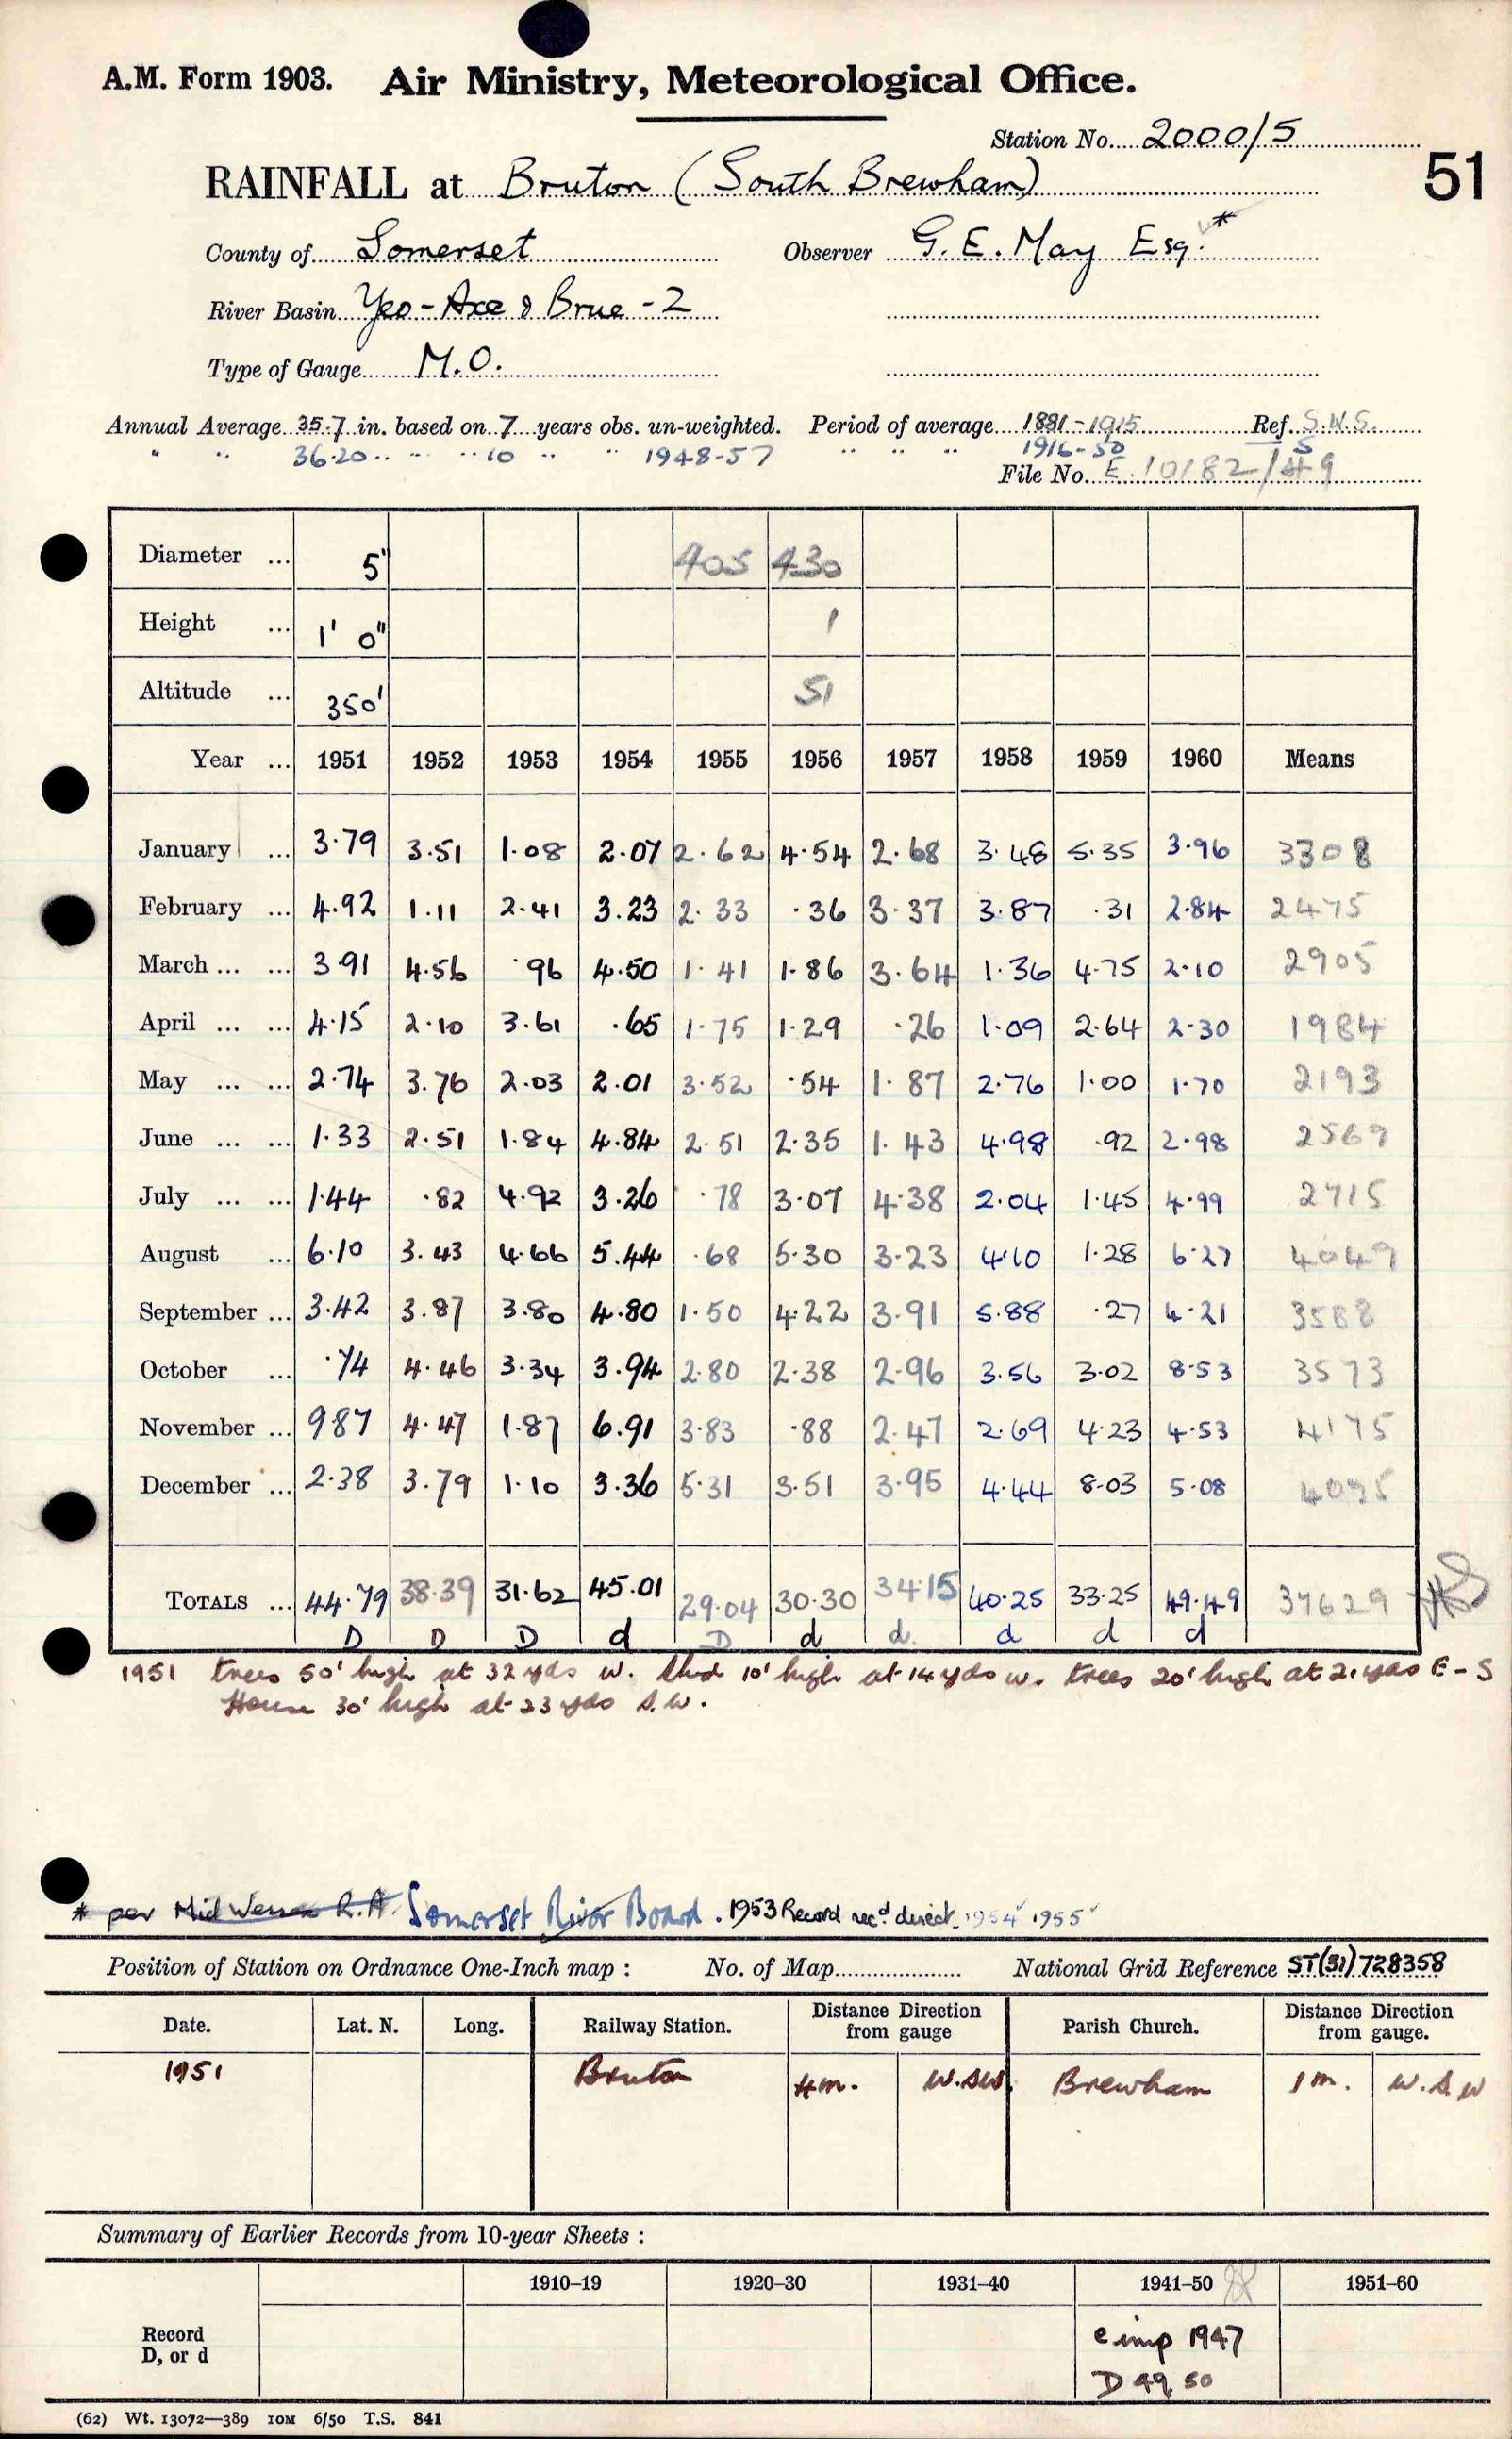 A.M. Form 1903. Air Ministry, Meteorological Office.
Station No. 2000/5
51
RAINFALL at Bruton (South Brewham)
County of Somerset Observer G. E. May Esq. *
River Basin Yeo - Axe & Brue - 2
Type of Gauge M.O.
Annual Average 35.7 in. based on 7 years obs. un-weighted. Period of average 1881-1915 Ref. S.W.S.
" " 36.20 " " " 10 " " 1948-57 " " " 1916-50 5
File No. E 10182/49
Diameter ... 5" 405 430
Height ... 1' 0" 1
Altitude ... 350' 51
Year ... 1951 1952 1953 1954 1955 1956 1957 1958 1959 1960 Means
January ... 3.79 3.51 1.08 2.07 2.62 4.54 2.68 3.48 5.35 3.96 3308
February ... 4.92 1.11 2.41 3.23 2.33 .36 3.37 3.87 .31 2.84 2475
March ... ... 3.91 4.56 .96 4.50 1.41 1.86 3.64 1.36 4.75 2.10 2905
April ... ... 4.15 2.10 3.61 .65 1.75 1.29 .26 1.09 2.64 2.30 1984
May ... ... 2.74 3.76 2.03 2.01 3.52 .54 1.87 2.76 1.00 1.70 2193
June ... ... 1.33 2.51 1.84 4.84 2.51 2.35 1.43 4.98 .92 2.98 2569
July ... ... 1.44 .82 4.92 3.26 .78 3.07 4.38 2.04 1.45 4.99 2715
August ... 6.10 3.43 4.66 5.44 .68 5.30 3.23 4.10 1.28 6.27 4049
September ... 3.42 3.87 3.80 4.80 1.50 4.22 3.91 5.88 .27 4.21 3588
October ... .74 4.46 3.34 3.94 2.80 2.38 2.96 3.56 3.02 8.53 3573
November ... 9.87 4.47 1.87 6.91 3.83 .88 2.47 2.69 4.23 4.53 4175
December ... 2.38 3.79 1.10 3.36 5.31 3.51 3.95 4.44 8.03 5.08 4095
TOTALS ... 44.79 38.39 31.62 45.01 29.04 30.30 34.15 40.25 33.25 49.49 37629
D D D d D d d. d d d
1951 trees 50' high at 32 yds W. Shed 10' high at 14 yds W. trees 20' high at 21 yds E - S
House 30' high at 23 yds S.W.
* per Mid Wessex R.A. Somerset River Board. 1953 Record recd direct. 1954 1955
Position of Station on Ordnance One-Inch map : No. of Map National Grid Reference ST(31)728358
Date. Lat. N. Long. Railway Station. Distance Direction from gauge Parish Church. Distance Direction from gauge.
1951 Bruton 4m. W.SW. Brewham 1m. W.S.W
Summary of Earlier Records from 10-year Sheets :
1910–19 1920–30 1931–40 1941–50 1951–60
Record
D, or d
e imp 1947
D 49, 50
(62) Wt. 13072—389 10M 6/50 T.S. 841